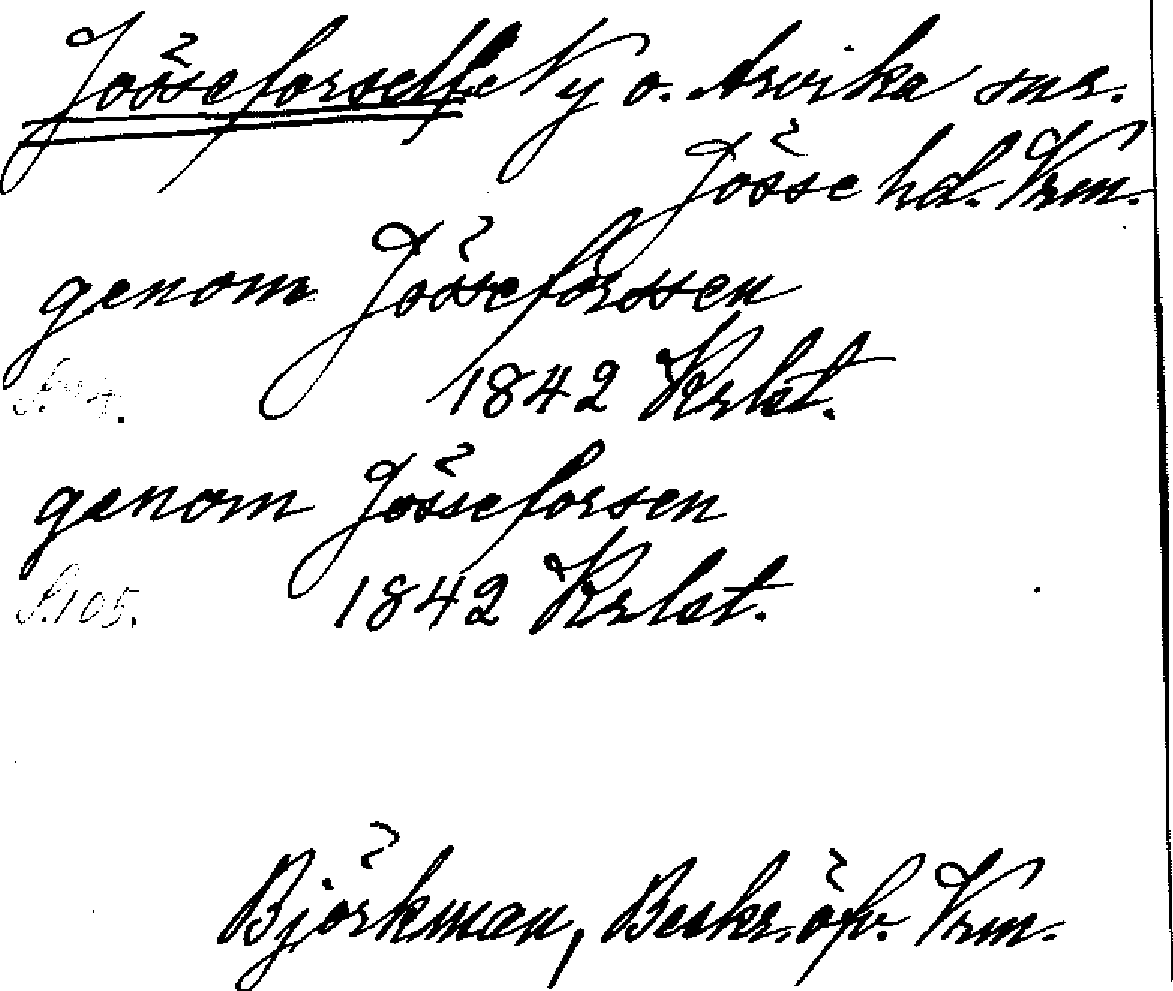 Jösseforself Ny o. Arvika snr.
Jösse hd. Vrm.
genom Jösseforssen
1842 Krlst.
genom Jösseforsen
S.105. 1842 Krlst.
Björkman, Beskr. öfv. Vrm.